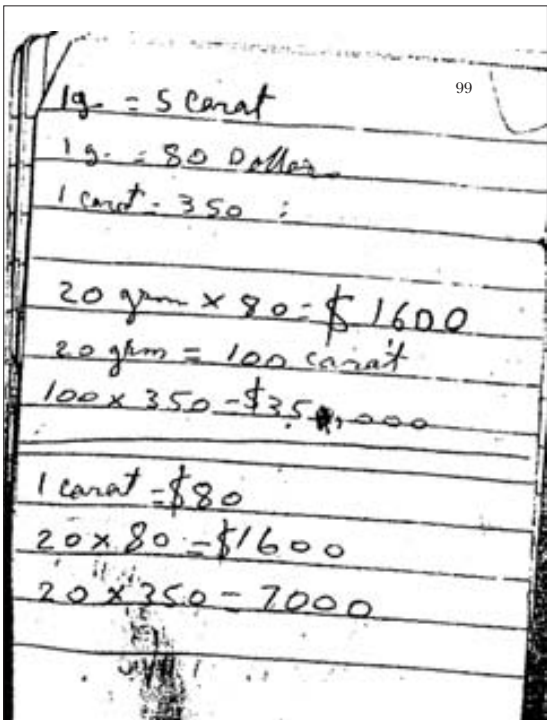 99
1g. = 5 Carat
1 g. = 80 Dollar
1 carat = 350 :
20 grm × 80 = $ 1600
20 grm = 100 carat
100 × 350 = $35,000
1 carat = $80
20 × 80 = $1600
20 × 350 = 7000